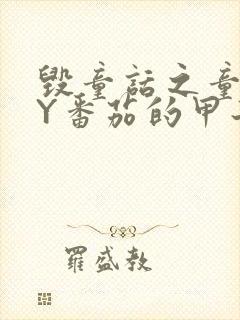 毁童话之童
Y番茄的甲
羅盛教